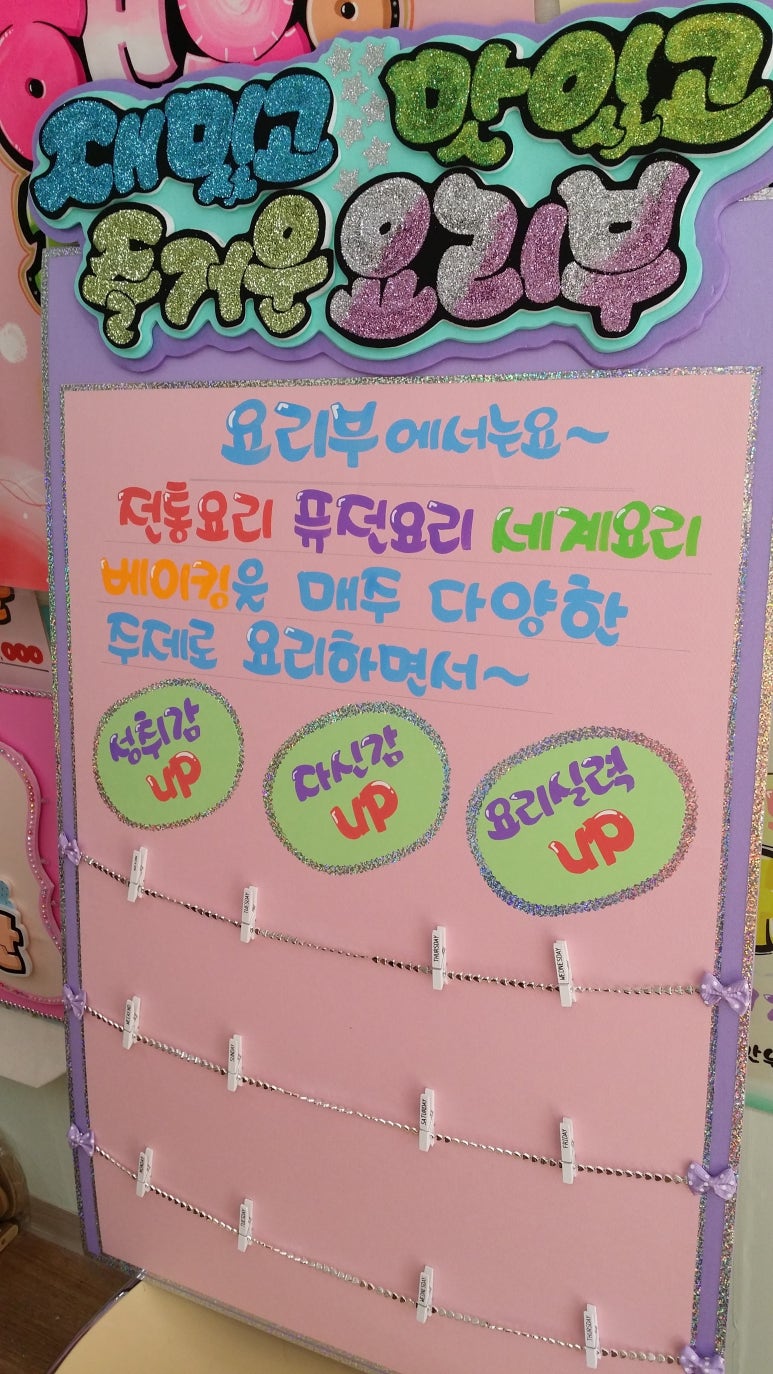 재밌고 맛있고
즐거운 요리부
요리부에서는요~
전통요리 퓨전요리 세계요리
베이킹웃 매주 다양한
주제로 요리하면서~
성취감
up
자신감
up
요리실력
up
TUESDAY
THURSDAY
WEDNESDAY
WEEKEND
SUNDAY
SATURDAY
FRIDAY
MONDAY
TUESDAY
WEDNESDAY
THURSDAY